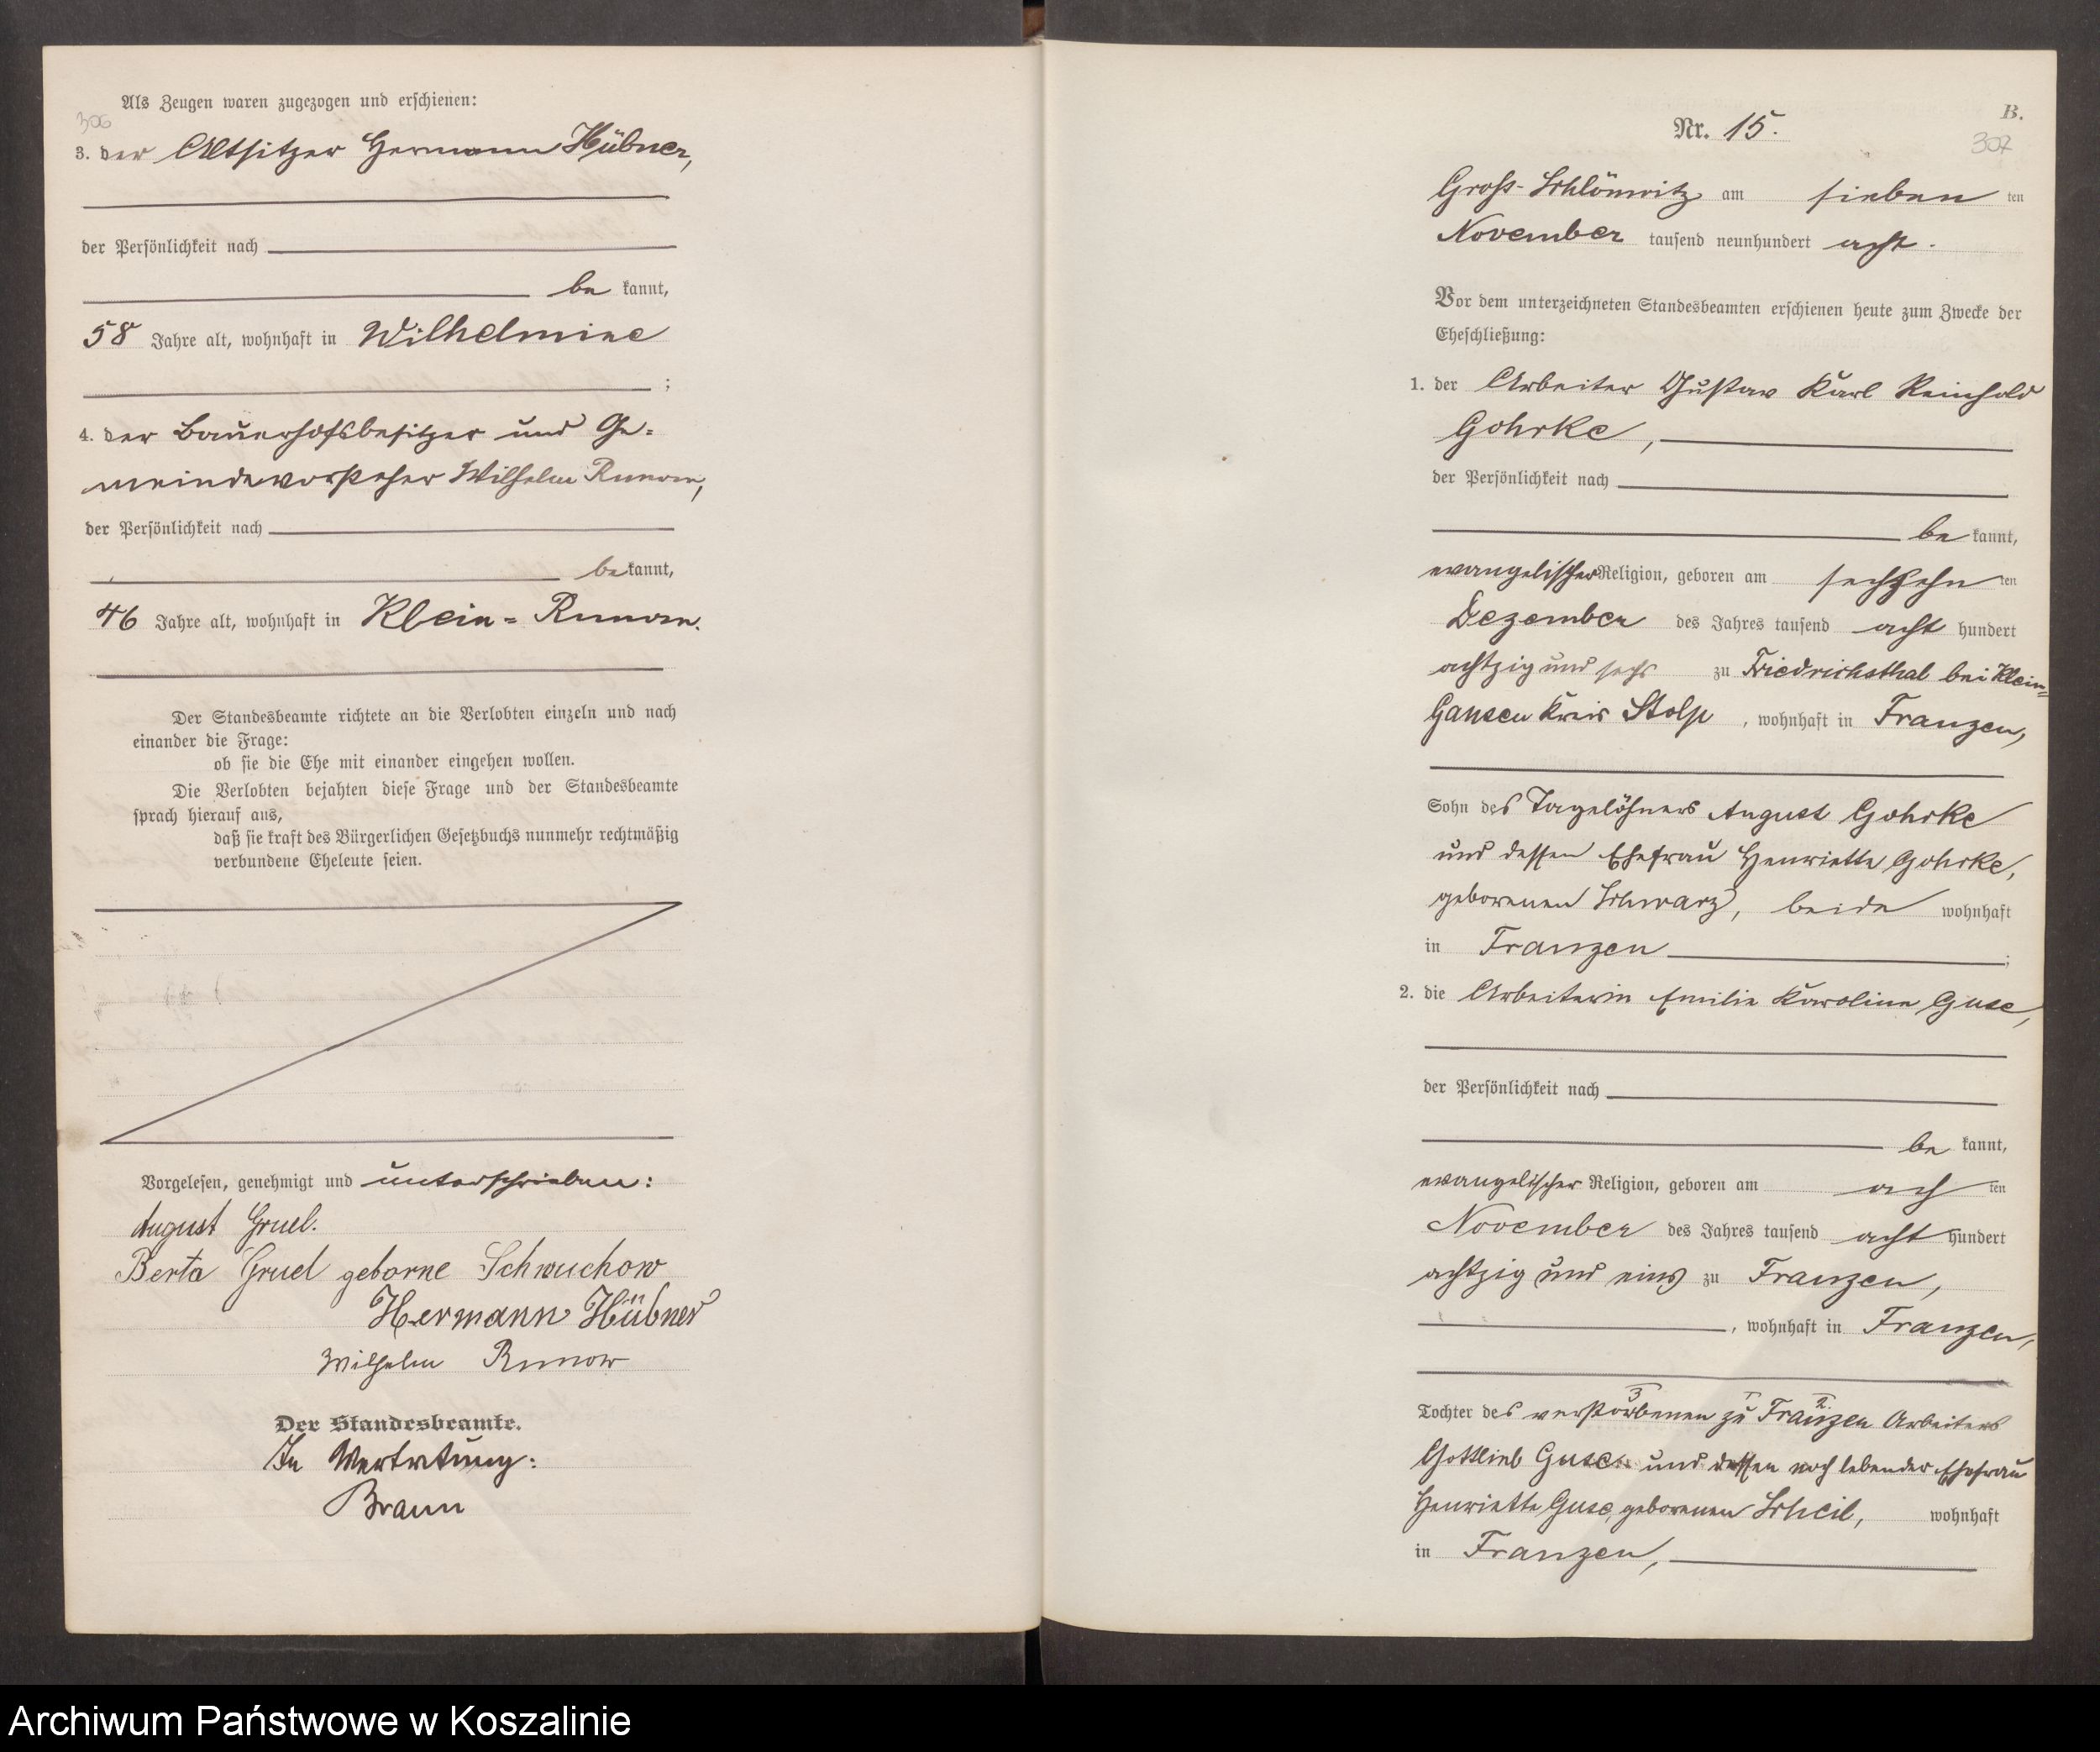 Als Zeugen waren zugezogen und erschienen:
306
3. der Altsitzer Hermann Hübner,
der Persönlichkeit nach
be kannt,
58 Jahre alt, wohnhaft in Wilhelmine
;
4. der Bauerhofsbesitzer und Ge=
meindevorsteher Wilhelm Runow,
der Persönlichkeit nach
be kannt,
46 Jahre alt, wohnhaft in Klein=Runow.
Der Standesbeamte richtete an die Verlobten einzeln und nach
einander die Frage:
ob sie die Ehe mit einander eingehen wollen.
Die Verlobten bejahten diese Frage und der Standesbeamte
sprach hierauf aus,
daß sie kraft des Bürgerlichen Gesetzbuchs nunmehr rechtmäßig
verbundene Eheleute seien.
Vorgelesen, genehmigt und unterschrieben:
August Gruel.
Berta Gruel geborne Schwuchow
Hermann Hübner
Wilhelm Runow
Der Standesbeamte.
In Vertretung:
Braun
B.
Nr. 15.
307
Groß-Schlönwitz am sieben ten
November tausend neunhundert acht.
Vor dem unterzeichneten Standesbeamten erschienen heute zum Zwecke der
Eheschließung:
1. der Arbeiter Gustav Karl Reinhold
Gohrke,
der Persönlichkeit nach
be kannt,
evangelischer Religion, geboren am sechzehn ten
Dezember des Jahres tausend acht hundert
achtzig und sechs zu Friedrichsthal bei Klein=
Gansen Kreis Stolp, wohnhaft in Franzen,
Sohn des Tagelöhners August Gohrke
und dessen Ehefrau Henriette Gohrke,
geborenen Schwarz, beide wohnhaft
in Franzen ;
2. die Arbeiterin Emilie Karoline Guse,
der Persönlichkeit nach
be kannt,
evangelischer Religion, geboren am ach ten
November des Jahres tausend acht hundert
achtzig und eins zu Franzen,
, wohnhaft in Franzen,
3 1 2
Tochter des verstorbenen zu Franzen Arbeiters
Gottlieb Guse und dessen noch lebender Ehefrau
Henriette Guse, geborenen Scheil, wohnhaft
in Franzen,
Archiwum Państwowe w Koszalinie